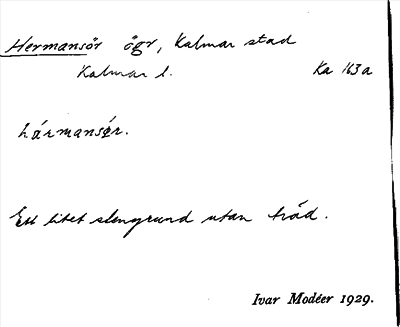 Hermansör ögr, Kalmar stad
Kalmar l. Ka 163a
hármansö̀r.
Ett litet stengrund utan träd.
Ivar Modéer 1929.